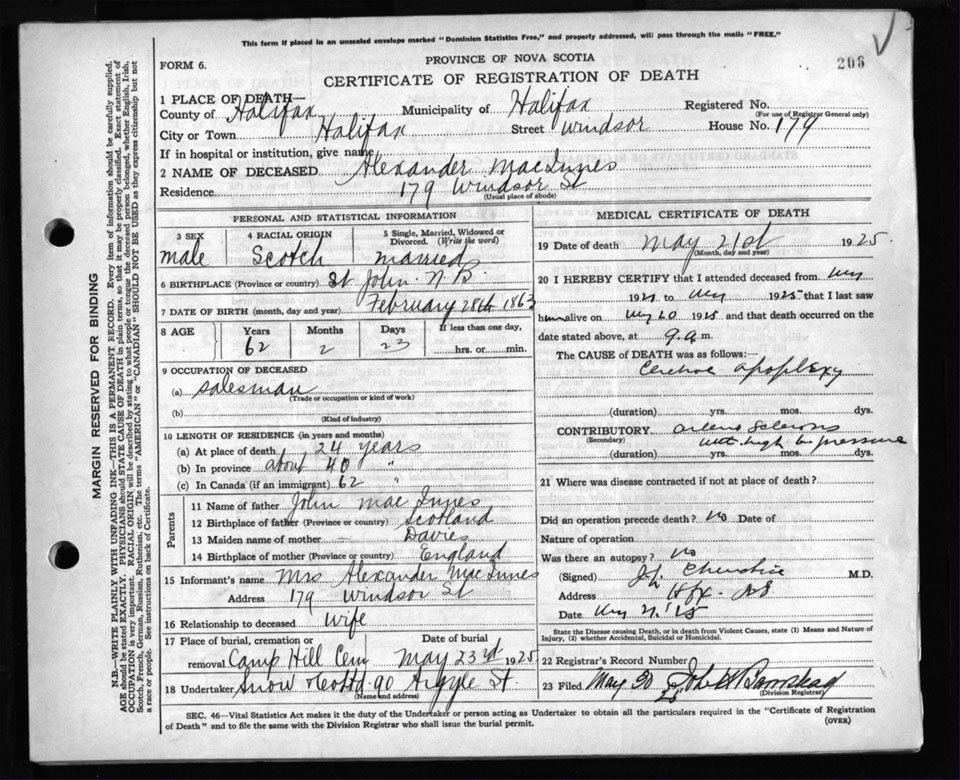 This form if placed in an unsealed envelope marked "Dominion Statistics Free," and properly addressed, will pass through the mails "FREE."
208
FORM 6.
PROVINCE OF NOVA SCOTIA
CERTIFICATE OF REGISTRATION OF DEATH
1 PLACE OF DEATH—
County of Halifax Municipality of Halifax Registered No.
(For use of Registrar General only)
City or Town Halifax Street Windsor House No. 179
If in hospital or institution, give name
2 NAME OF DECEASED Alexander MacInnes
Residence 179 Windsor St
(Usual place of abode)
PERSONAL AND STATISTICAL INFORMATION
3 SEX male
4 RACIAL ORIGIN Scotch
5 Single, Married, Widowed or Divorced. (Write the word) married
6 BIRTHPLACE (Province or country) St John N.B.
7 DATE OF BIRTH (month, day and year) February 28th 1863
8 AGE Years Months Days If less than one day,
62 2 23 hrs. or min.
9 OCCUPATION OF DECEASED
(a) salesman
(Trade or occupation or kind of work)
(b)
(Kind of industry)
10 LENGTH OF RESIDENCE (in years and months)
(a) At place of death 24 years
(b) In province about 40 "
(c) In Canada (if an immigrant) 62 "
Parents
11 Name of father John MacInnes
12 Birthplace of father (Province or country) Scotland
13 Maiden name of mother — Davies
14 Birthplace of mother (Province or country) England
15 Informant's name Mrs Alexander MacInnes
Address 179 Windsor St
16 Relationship to deceased wife
17 Place of burial, cremation or removal Camp Hill Cem Date of burial May 23rd 1925
18 Undertaker Snow & Co Ltd 90 Argyle St.
(Name and address)
MEDICAL CERTIFICATE OF DEATH
19 Date of death May 21st 1925
(Month, day and year)
20 I HEREBY CERTIFY that I attended deceased from
to 1925 that I last saw
him alive on 20 1925 and that death occurred on
date stated above, at 9 a m.
The CAUSE OF DEATH was as follows:—
apoplexy
(duration) yrs. mos. dys.
CONTRIBUTORY
(Secondary) with high b pressure
(duration) yrs. mos. dys.
21 Where was disease contracted if not at place of death?
Did an operation precede death? no Date of
Nature of operation
Was there an autopsy? No
(Signed) M.D.
Address Hfx. N.S
Date
State the Disease causing Death, or in death from Violent Causes, state (1) Means and Nature of
Injury, (2) whether Accidental, Suicidal or Homicidal.
22 Registrar's Record Number
23 Filed May 30
(Division Registrar)
SEC. 46—Vital Statistics Act makes it the duty of the Undertaker or person acting as Undertaker to obtain all the particulars required in the "Certificate of Registration
of Death" and to file the same with the Division Registrar who shall issue the burial permit.
(OVER)
MARGIN RESERVED FOR BINDING
N.B.—WRITE PLAINLY WITH UNFADING INK—THIS IS A PERMANENT RECORD. Every item of information should be carefully supplied.
AGE should be stated EXACTLY. PHYSICIANS should STATE CAUSE OF DEATH in plain terms, so that it may be properly classified. Exact statement of
OCCUPATION is very important. RACIAL ORIGIN will be described by stating to what people or tongue the deceased person belonged, whether English, Irish,
Scotch, French, German, Russian, Ruthenian, etc. The terms "AMERICAN" or "CANADIAN" SHOULD NOT BE USED as they express citizenship but not
a race or people. See instructions on back of Certificate.